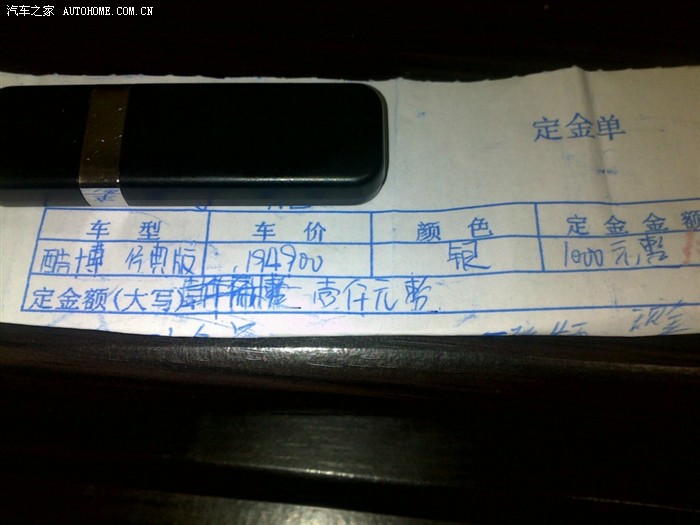 汽车之家 AUTOHOME.COM.CN
定金单
车型 车价 颜色 定金金额
酷博 经典版 194900 银 1000元整
定金额(大写) 壹仟元整